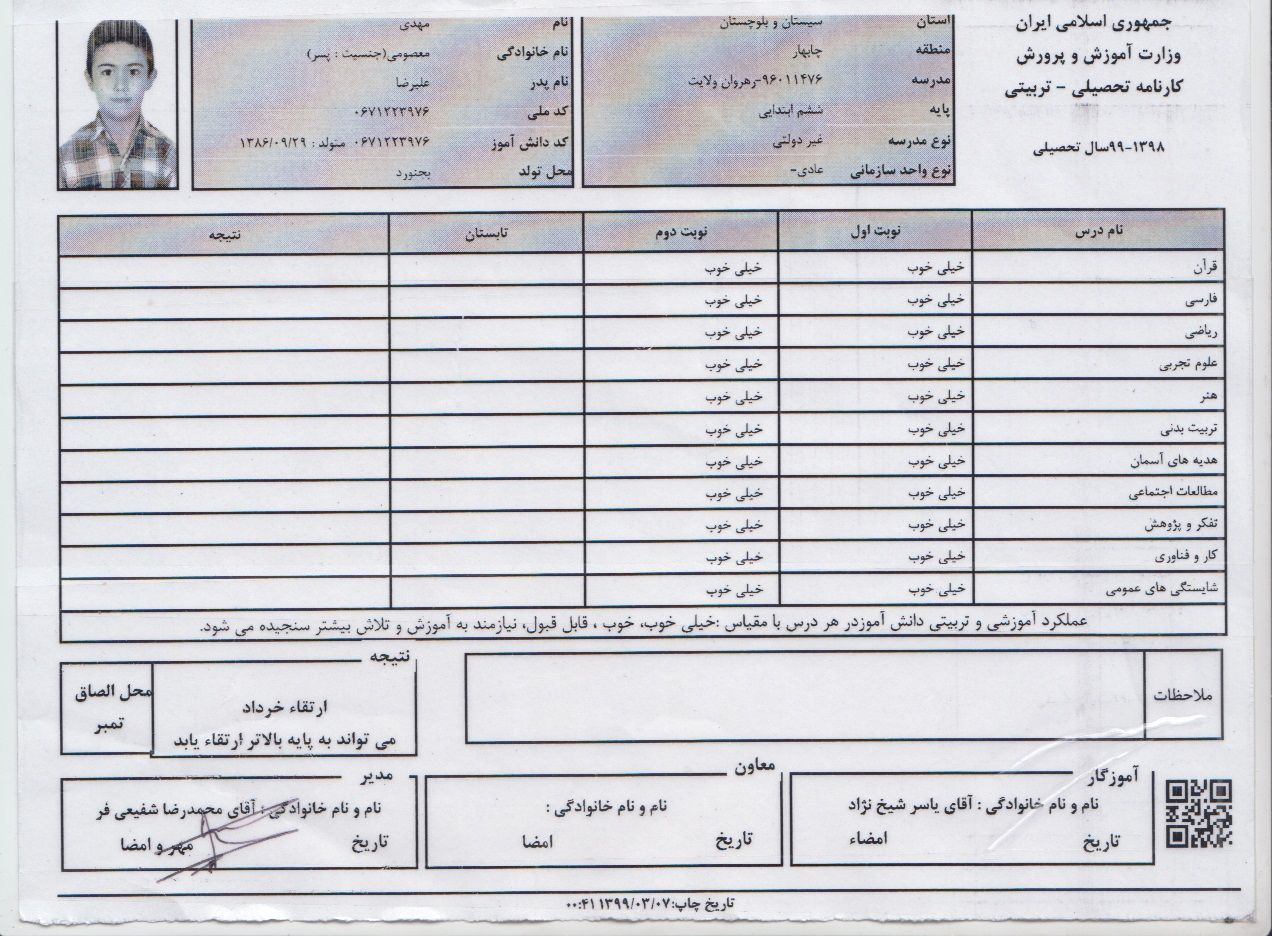 جمهوری اسلامی ایران
وزارت آموزش و پرورش
کارنامه تحصیلی - تربیتی
۹۹-۱۳۹۸سال تحصیلی
استان سیستان و بلوچستان
منطقه چابهار
مدرسه ۹۶۰۱۱۴۷۶-رهروان ولایت
پایه ششم ابتدایی
نوع مدرسه غیر دولتی
نوع واحد سازمانی عادی-
نام مهدی
نام خانوادگی معصومی(جنسیت : پسر)
نام پدر علیرضا
کد ملی ۰۶۷۱۲۲۳۹۷۶
کد دانش آموز ۰۶۷۱۲۲۳۹۷۶ متولد : ۱۳۸۶/۰۹/۲۹
محل تولد بجنورد
نام درس نوبت اول نوبت دوم تابستان نتیجه
قرآن خیلی خوب خیلی خوب
فارسی خیلی خوب خیلی خوب
ریاضی خیلی خوب خیلی خوب
علوم تجربی خیلی خوب خیلی خوب
هنر خیلی خوب خیلی خوب
تربیت بدنی خیلی خوب خیلی خوب
هدیه های آسمان خیلی خوب خیلی خوب
مطالعات اجتماعی خیلی خوب خیلی خوب
تفکر و پژوهش خیلی خوب خیلی خوب
کار و فناوری خیلی خوب خیلی خوب
شایستگی های عمومی خیلی خوب خیلی خوب
عملکرد آموزشی و تربیتی دانش آموزدر هر درس با مقیاس :خیلی خوب، خوب ، قابل قبول، نیازمند به آموزش و تلاش بیشتر سنجیده می شود.
ملاحظات
نتیجه
ارتقاء خرداد
می تواند به پایه بالاتر ارتقاء یابد
محل الصاق
تمبر
آموزگار
نام و نام خانوادگی : آقای یاسر شیخ نژاد
تاریخ امضاء
معاون
نام و نام خانوادگی :
تاریخ امضا
مدیر
نام و نام خانوادگی : آقای محمدرضا شفیعی فر
تاریخ مهر و امضا
تاریخ چاپ:۱۳۹۹/۰۳/۰۷ ۰۰:۴۱